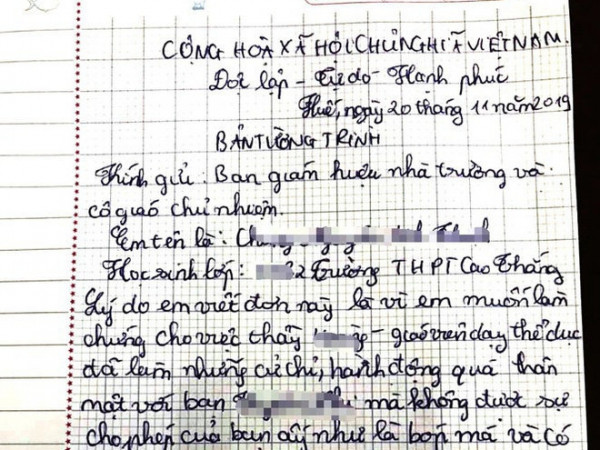 CỘNG HOÀ XÃ HỘI CHỦ NGHĨA VIỆT NAM.
Độc lập - Tự do - Hạnh phúc
Huế, ngày 20 tháng 11 năm 2019
BẢN TƯỜNG TRÌNH
Kính gửi: Ban giám hiệu nhà trường và
cô giáo chủ nhiệm.
Em tên là:
Học sinh lớp: 2 Trường THPT Cao Thắng
Lý do em viết đơn này là vì em muốn làm
chứng cho việc thầy - giáo viên dạy thể dục
đã làm những cử chỉ, hành động quá thân
mật với bạn mà không được sự
cho phép của bạn ấy như là bóp má và có